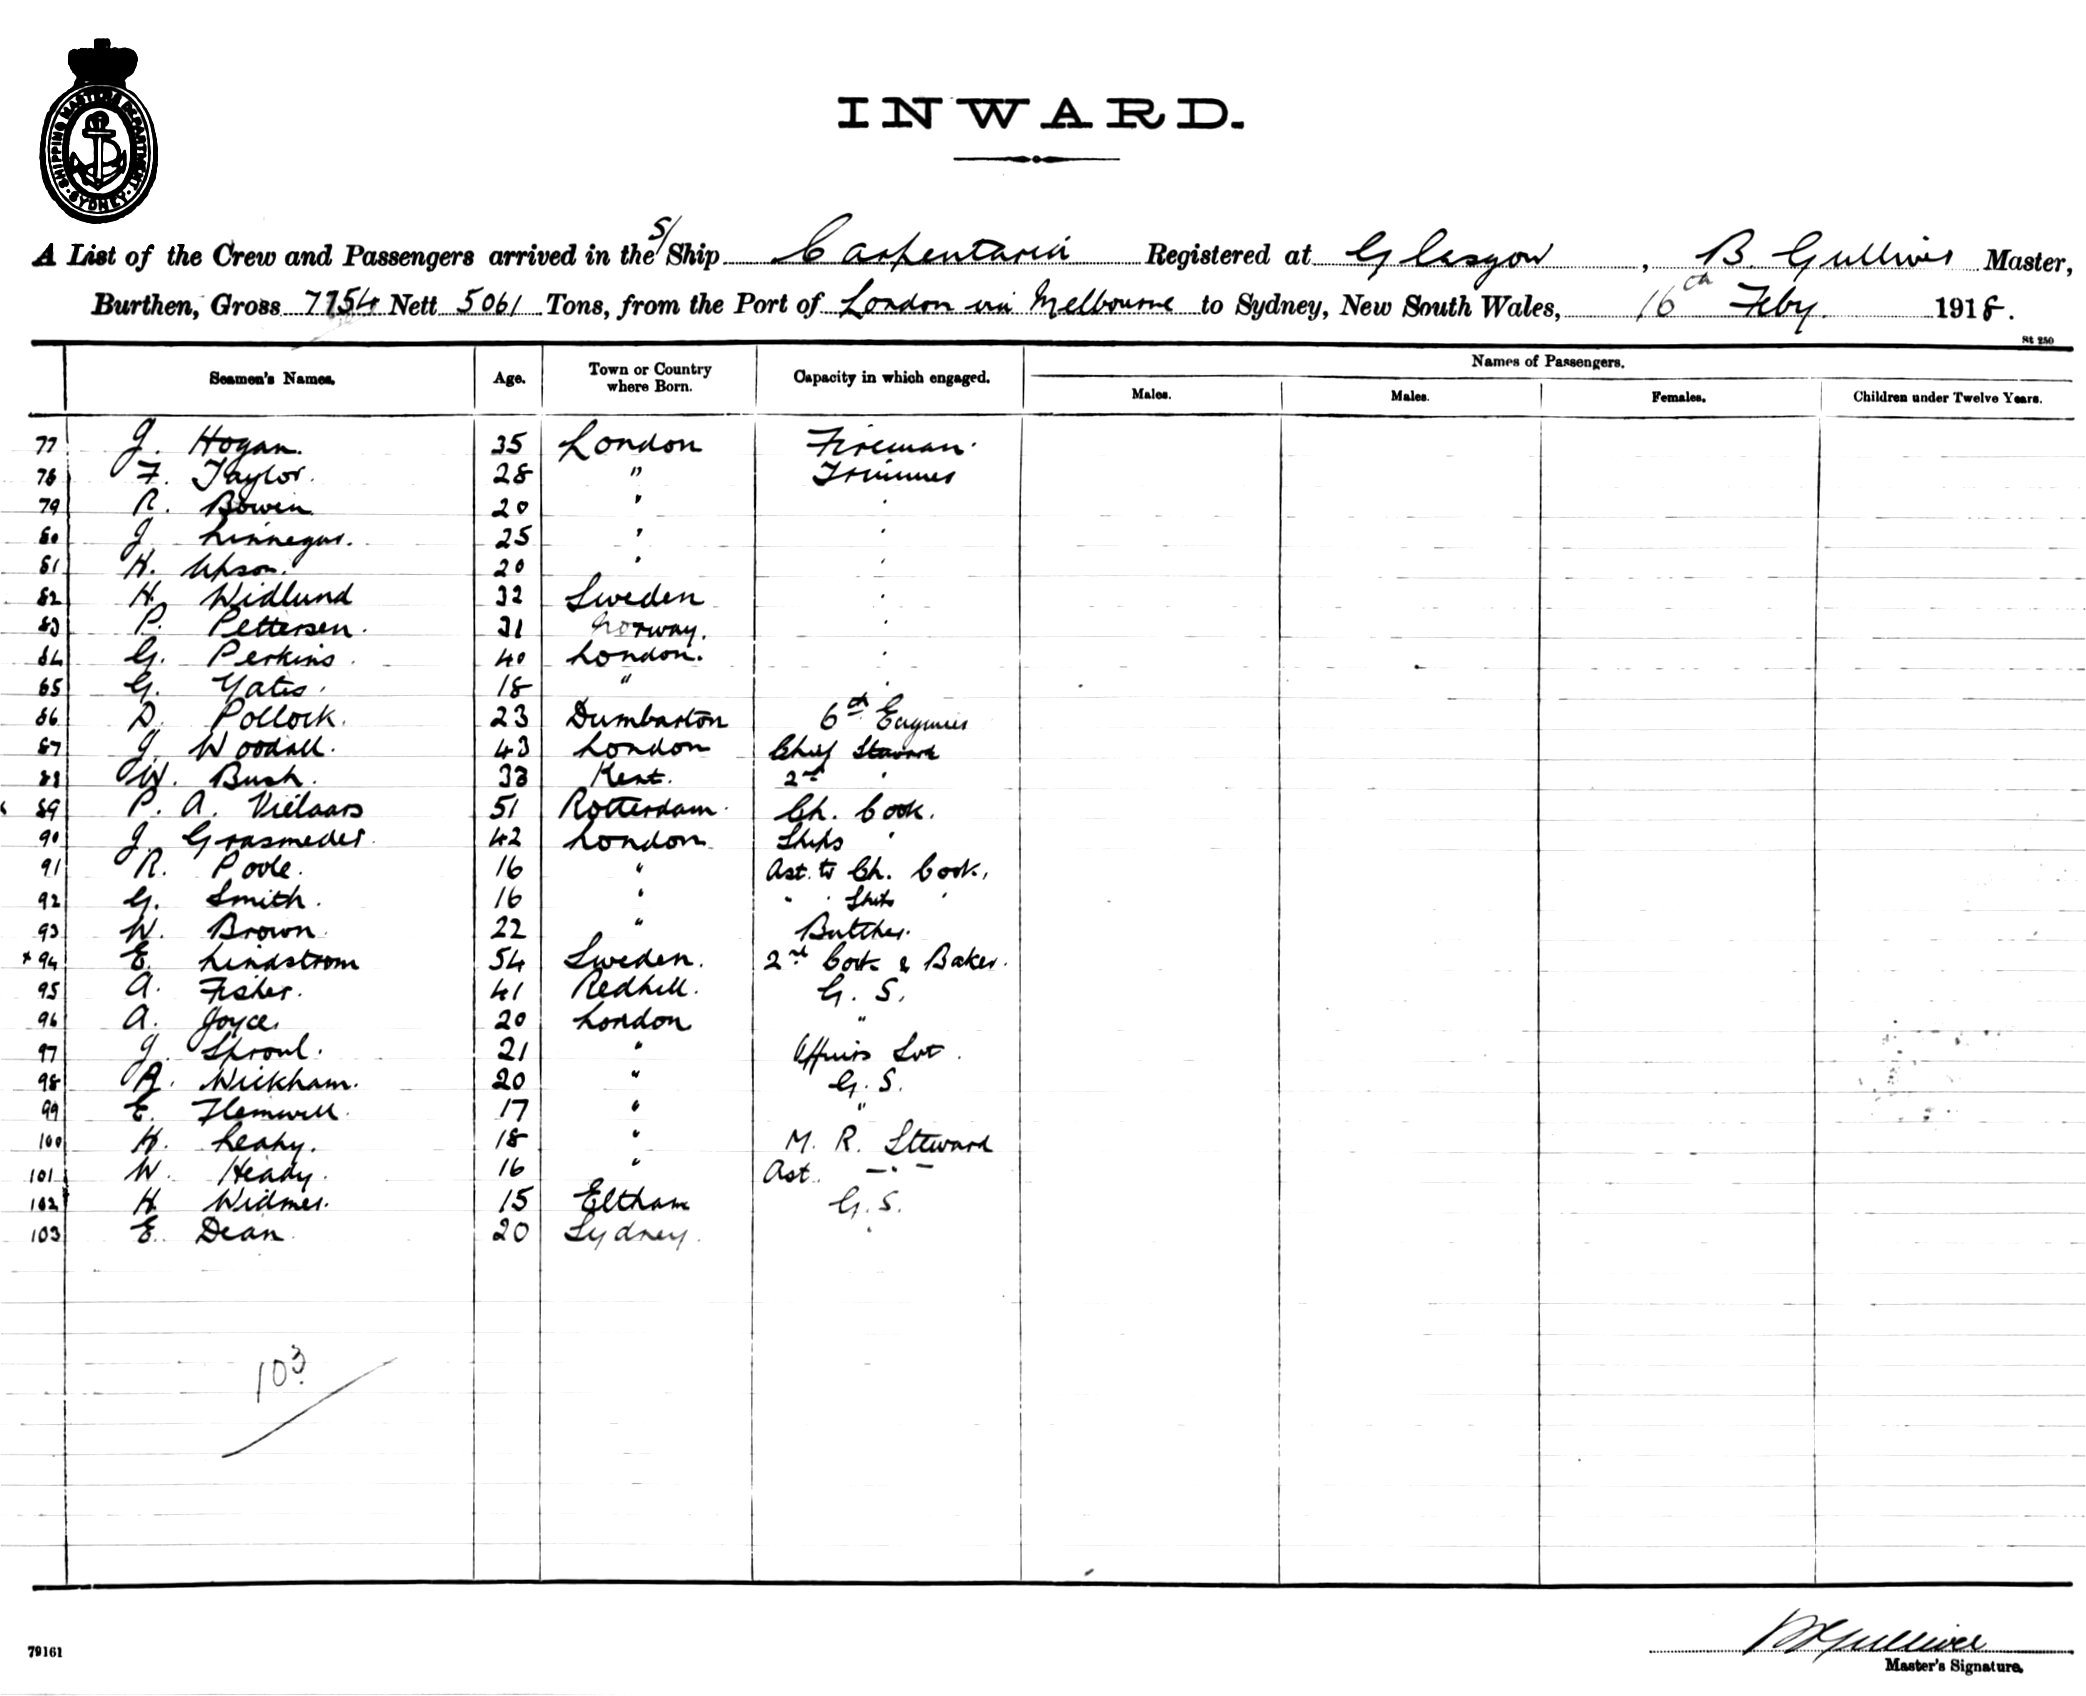 SHIPPING MASTERS DEPARTMENT · SYDNEY ·
INWARD.
A List of the Crew and Passengers arrived in the S/Ship Carpentaria Registered at Glasgow, B. Gulliver Master,
Burthen, Gross 7754 Nett 5061 Tons, from the Port of London via Melbourne to Sydney, New South Wales, 16th Feby. 1918.
St 250
Seamen's Names. Age. Town or Country where Born. Capacity in which engaged. Names of Passengers.
Males. Males. Females. Children under Twelve Years.
77 J. Hogan. 35 London Fireman.
78 F. Taylor. 28 " Trimmer
79 R. Bowen 20 " "
80 J. Linnegar. 25 " "
81 H. Upson. 20 " "
82 H. Widlund 32 Sweden "
83 P. Pettersen. 31 Norway. "
84 G. Perkins. 40 London. "
85 G. Yates. 18 " "
86 D. Pollock. 23 Dumbarton 6th Engineer
87 J. Woodall. 43 London Chief Steward
88 W. Bush. 38 Kent. 2nd "
89 P. A. Vielaars 51 Rotterdam. Ch. Cook.
90 J. Grasmeder. 42 London Ships "
91 R. Poole. 16 " Ast. to Ch. Cook.
92 G. Smith. 16 " " " Ships "
93 W. Brown. 22 " Butcher.
x 94 E. Lindstrom 54 Sweden. 2nd Cook & Baker.
95 A. Fisher. 41 Redhill. G. S.
96 A. Joyce. 20 London "
97 J. Sproul. 21 " Officers Svt.
98 A. Wickham. 20 " G. S.
99 E. Flemwell. 17 " "
100 H. Leahy. 18 " M. R. Steward
101 W. Heady. 16 " Ast. — " —
102 H. Widmer. 15 Eltham G. S.
103 E. Dean. 20 Sydney. "
103
B Gulliver
79161
Master's Signature.